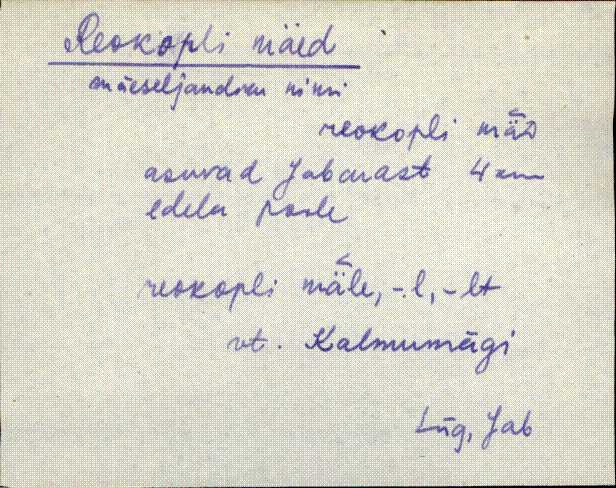 Reokopli mäed
mäeseljandiku nimi
reokopli mä̆D
asuvad Jabarast 4 km
edela poole
reokopli mä̆le, -l, -lt
vt. Kalmumägi
Lüg, Jab